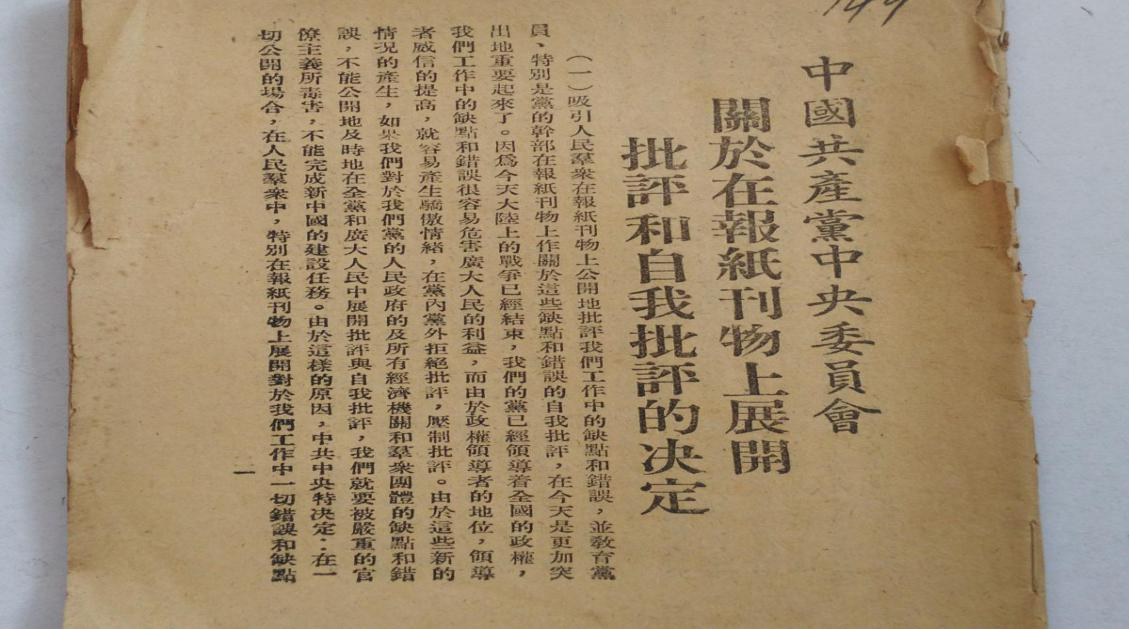 中國共產黨中央委員會
關於在報紙刊物上展開
批評和自我批評的决定
（一）吸引人民羣衆在報紙刊物上公開地批評我們工作中的缺點和錯誤，並敎育黨
員、特別是黨的幹部在報紙刊物上作關於這些缺點和錯誤的自我批評，在今天是更加突
出地重要起來了。因爲今天大陸上的戰爭已經結束，我們的黨已經領導着全國的政權，
我們工作中的缺點和錯誤很容易危害廣大人民的利益，而由於政權領導者的地位，領導
者威信的提高，就容易產生驕傲情緒，在黨內黨外拒絕批評，壓制批評。由於這些新的
情况的產生，如果我們對於我們黨的人民政府的及所有經濟機關和羣衆團體的缺點和錯
誤，不能公開地及時地在全黨和廣大人民中展開批評與自我批評，我們就要被嚴重的官
僚主義所毒害，不能完成新中國的建設任務。由於這樣的原因，中共中央特决定：在一
切公開的場合，在人民羣衆中，特別在報紙刊物上展開對於我們工作中一切錯誤和缺點
一